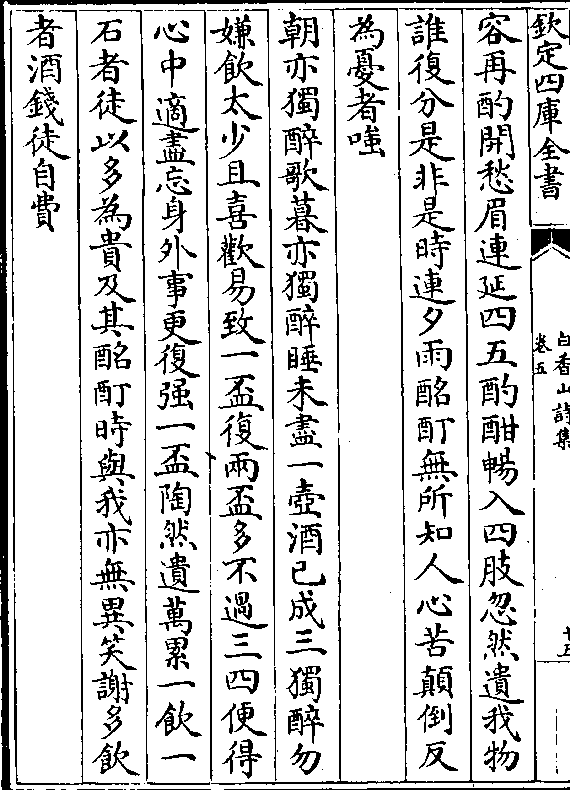 欽定四庫全書
白香山詩集
卷五
十五
容再酌開愁眉連延四五酌酣暢入四肢忽然遺我物
誰復分是非是時連夕雨酩酊無所知人心苦顛倒反
為憂者嗤
朝亦獨醉歌暮亦獨醉睡未盡一壺酒已成三獨醉勿
嫌飲太少且喜歡易致一盃復兩盃多不過三四便得
心中適盡忘身外事更復强一盃陶然遺萬累一飲一
石者徒以多為貴及其酩酊時與我亦無異笑謝多飲
者酒錢徒自費